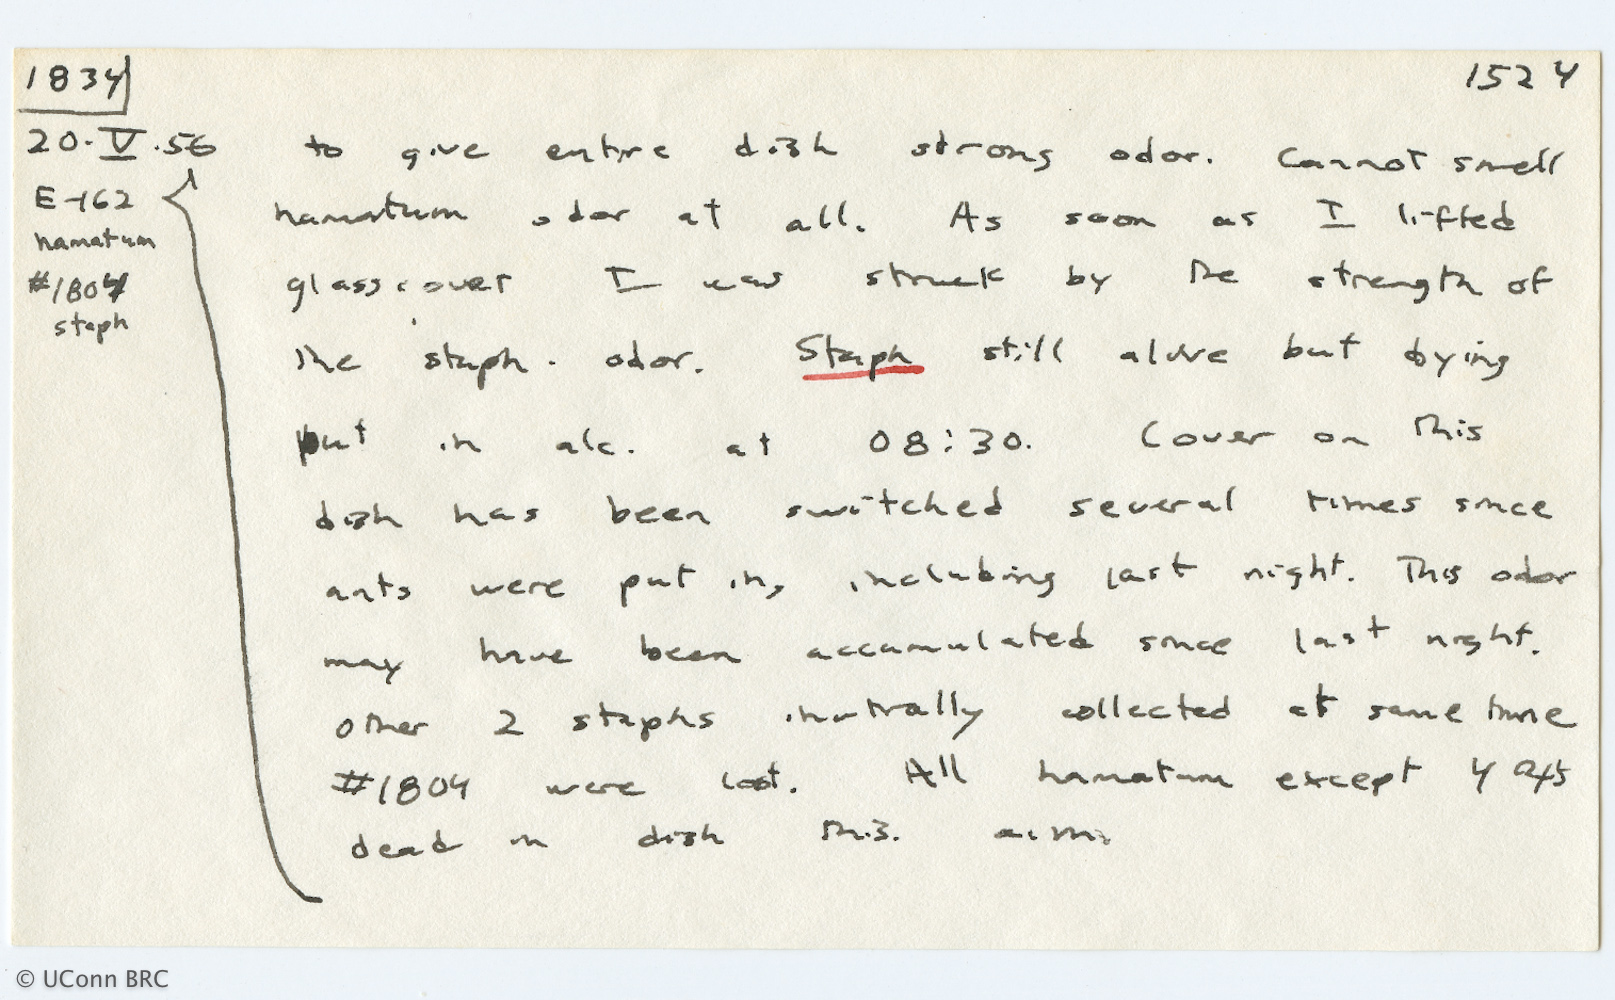 1834
1524
20.V.56
E-162
hamatum
#1804
staph
to give entire dish strong odor. Cannot smell
hamatum odor at all. As soon as I lifted
glass cover I was struck by the strength of
the staph. odor. Staph still alive but dying
put in alc. at 08:30. Cover on this
dish has been switched several times since
ants were put in, including last night. This odor
may have been accumulated since last night.
Other 2 staphs initially collected at same time
#1804 were lost. All hamatum except 4
dead in dish this a.m.
© UConn BRC